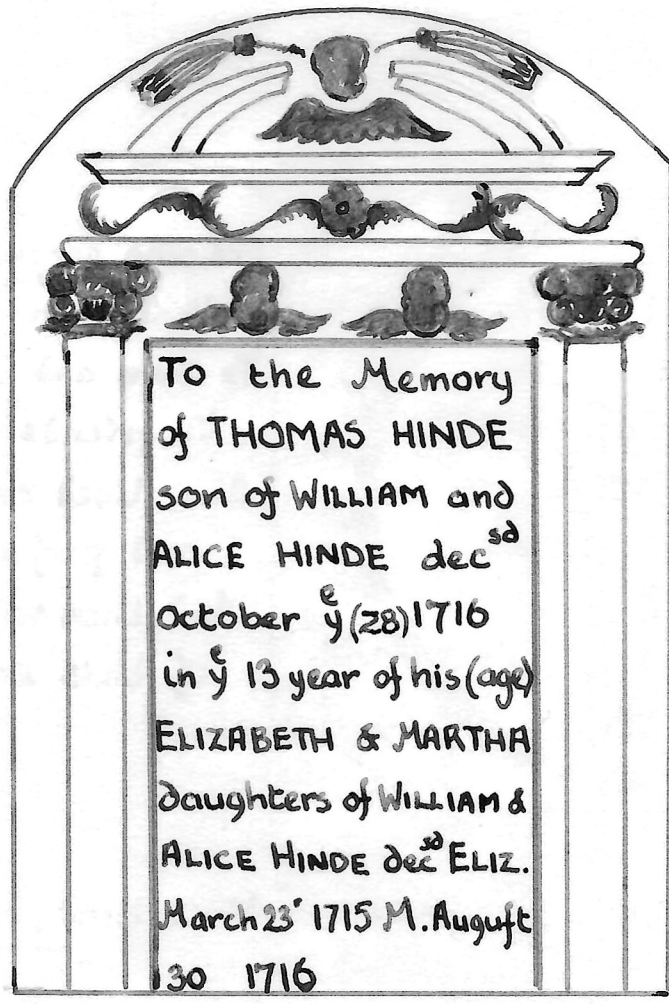 To the Memory
of THOMAS HINDE
son of WILLIAM and
ALICE HINDE decsd
October ye (28) 1716
in ye 13 year of his (age)
ELIZABETH & MARTHA
daughters of WILLIAM &
ALICE HINDE decsd ELIZ.
March 23r 1715 M. Auguſt
30 1716